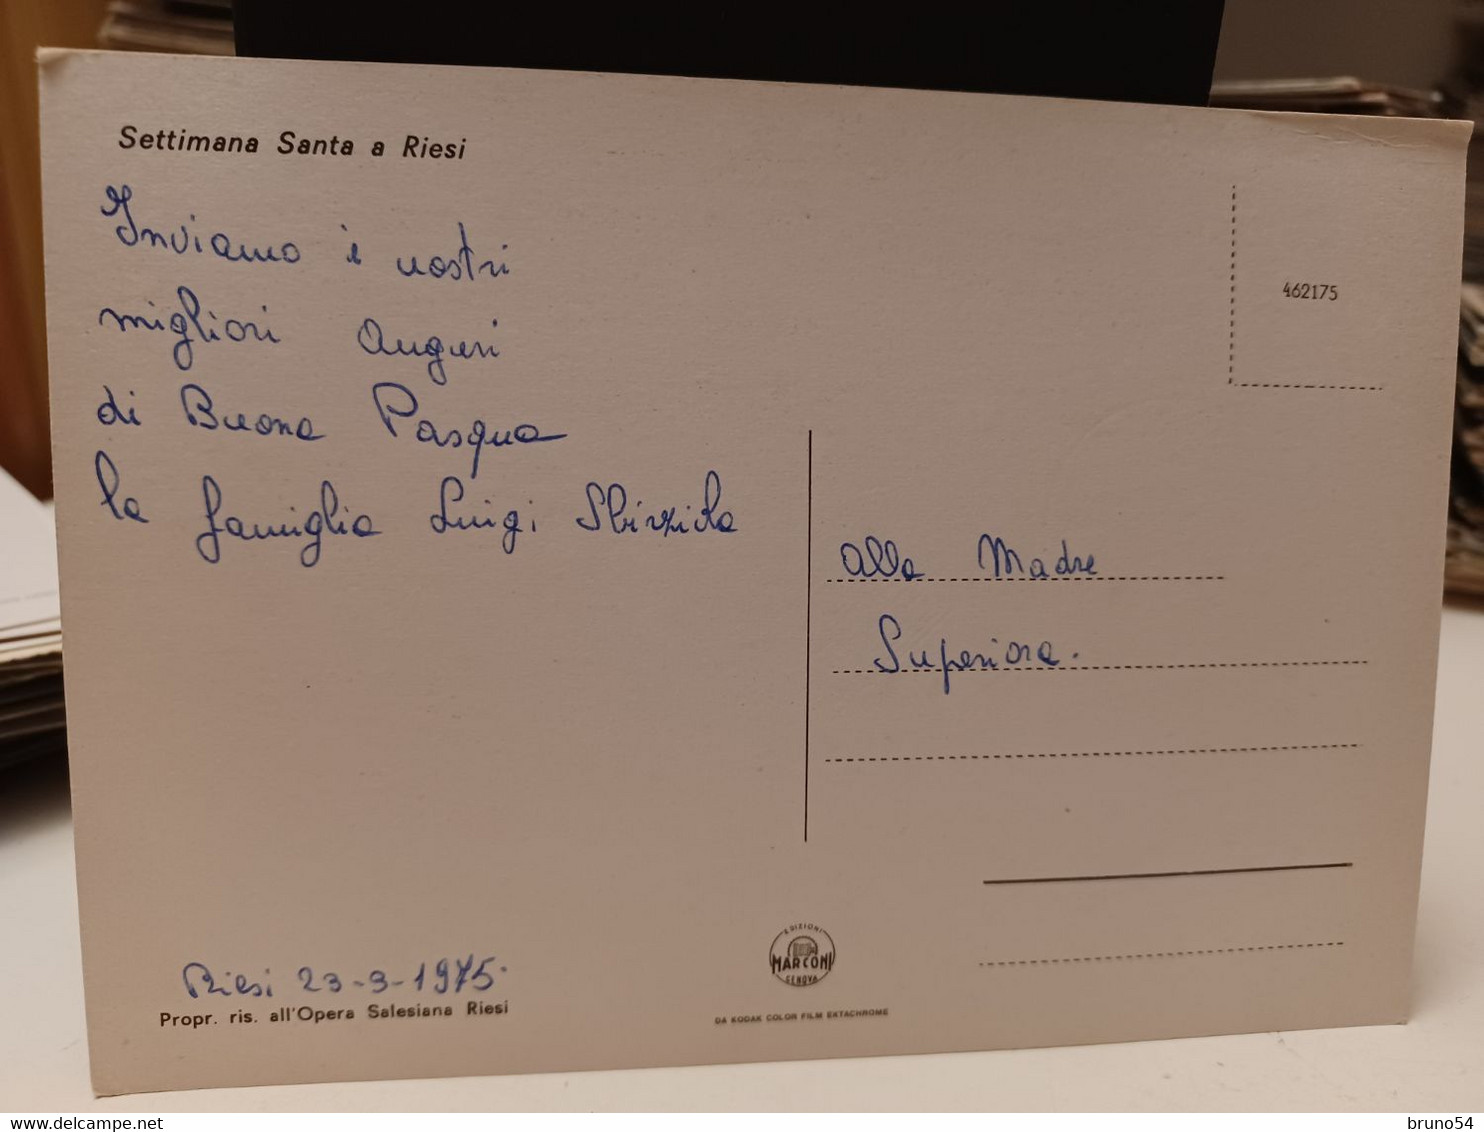 Settimana Santa a Riesi
Inviamo i nostri
migliori auguri
di Buona Pasqua
la famiglia Luigi
462175
alla Madre
Superiora.
Riesi 23-3-1975.
Propr. ris. all'Opera Salesiana Riesi
EDIZIONI
MARCONI
GENOVA
DA KODAK COLOR FILM EKTACHROME
bruno54